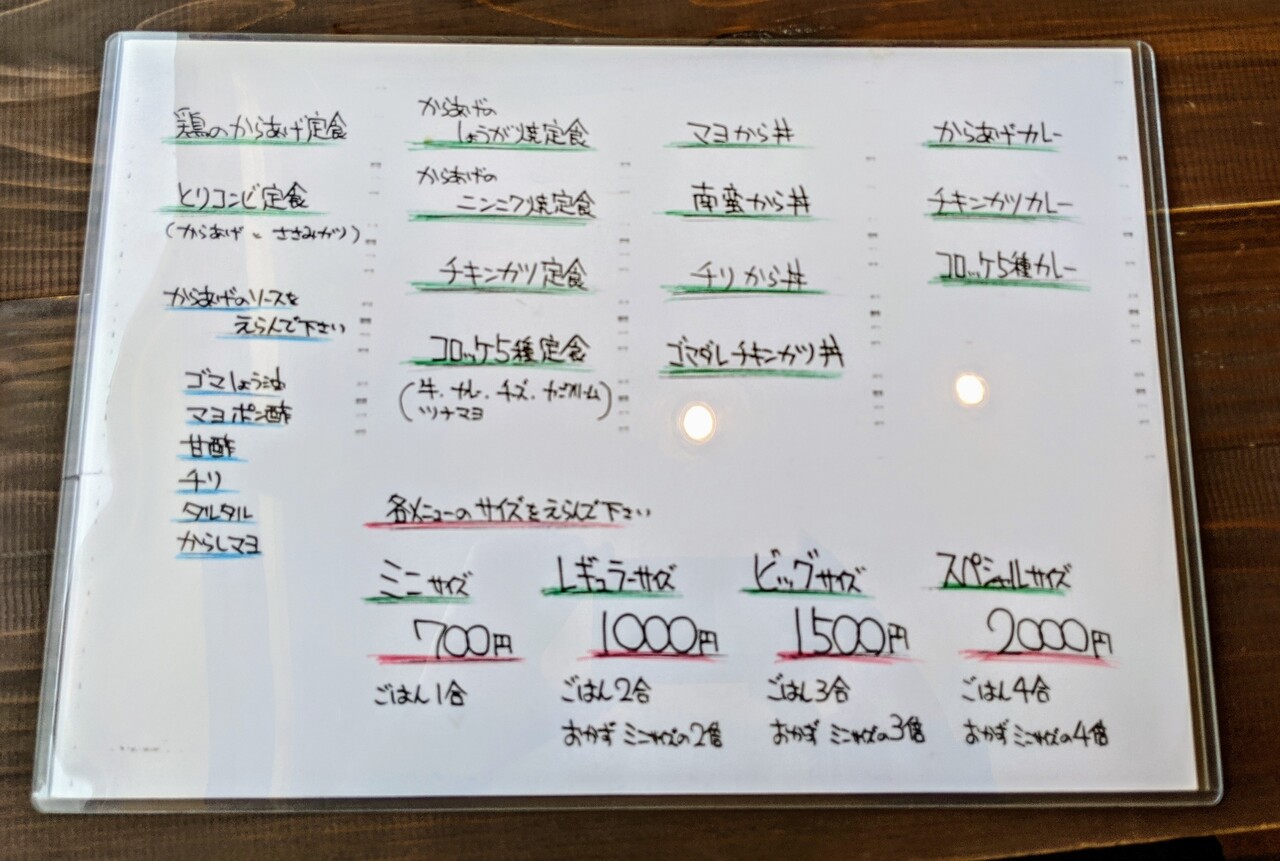 鶏のからあげ定食
とりコンビ定食
(からあげ と ささみカツ)
からあげのソースを
えらんで下さい
ゴマしょうゆ
マヨポン酢
甘酢
チリ
タルタル
からしマヨ
からあげの
しょうが焼定食
からあげの
ニンニク焼定食
チキンカツ定食
コロッケ5種定食
(牛、カレー、チーズ、カニクリーム
ツナマヨ)
マヨから丼
南蛮から丼
チリから丼
ゴマダレチキンカツ丼
からあげカレー
チキンカツカレー
コロッケ5種カレー
各メニューのサイズをえらんで下さい
ミニサイズ
700円
ごはん1合
レギュラーサイズ
1000円
ごはん2合
おかず ミニサイズの2倍
ビッグサイズ
1500円
ごはん3合
おかず ミニサイズの3倍
スペシャルサイズ
2000円
ごはん4合
おかず ミニサイズの4倍